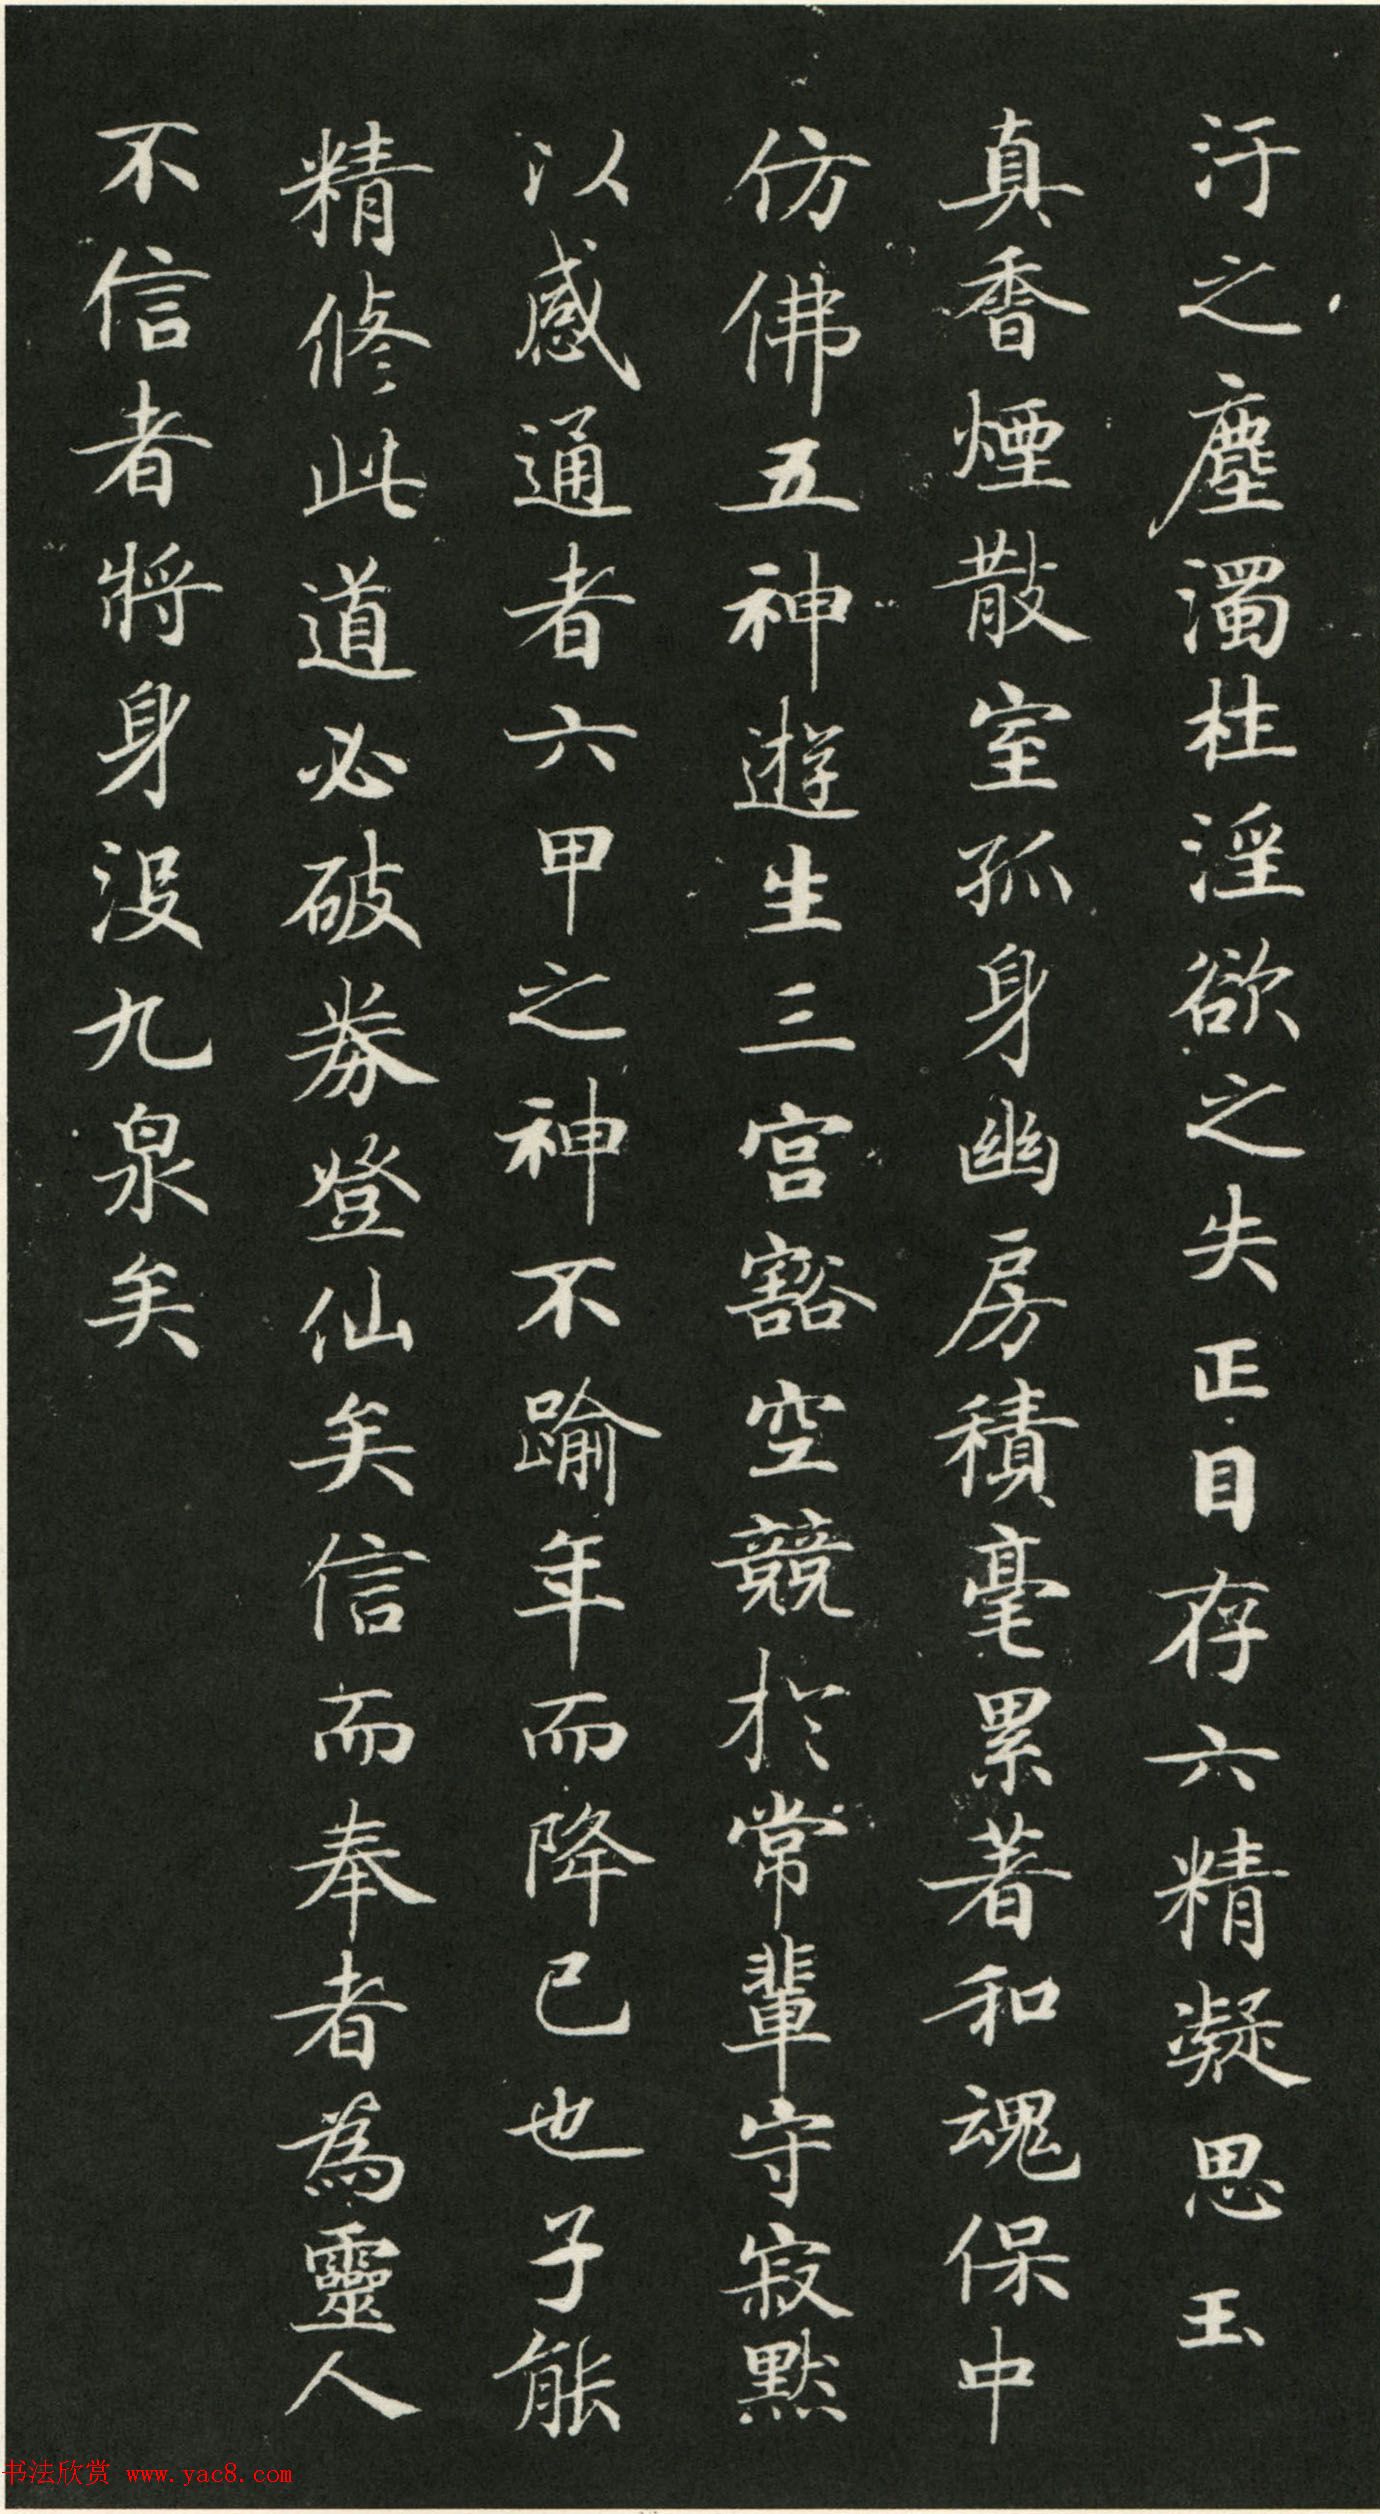 汙之塵濁杜淫欲之失正目存六精凝思玉
真香煙散室孤身幽房積毫累著和魂保中
仿佛五神遊生三宮豁空競於常輩守寂默
以感通者六甲之神不踰年而降已也子能
精脩此道必破券登仙矣信而奉者為靈人
不信者將身沒九泉矣
书法欣赏 www.yac8.com